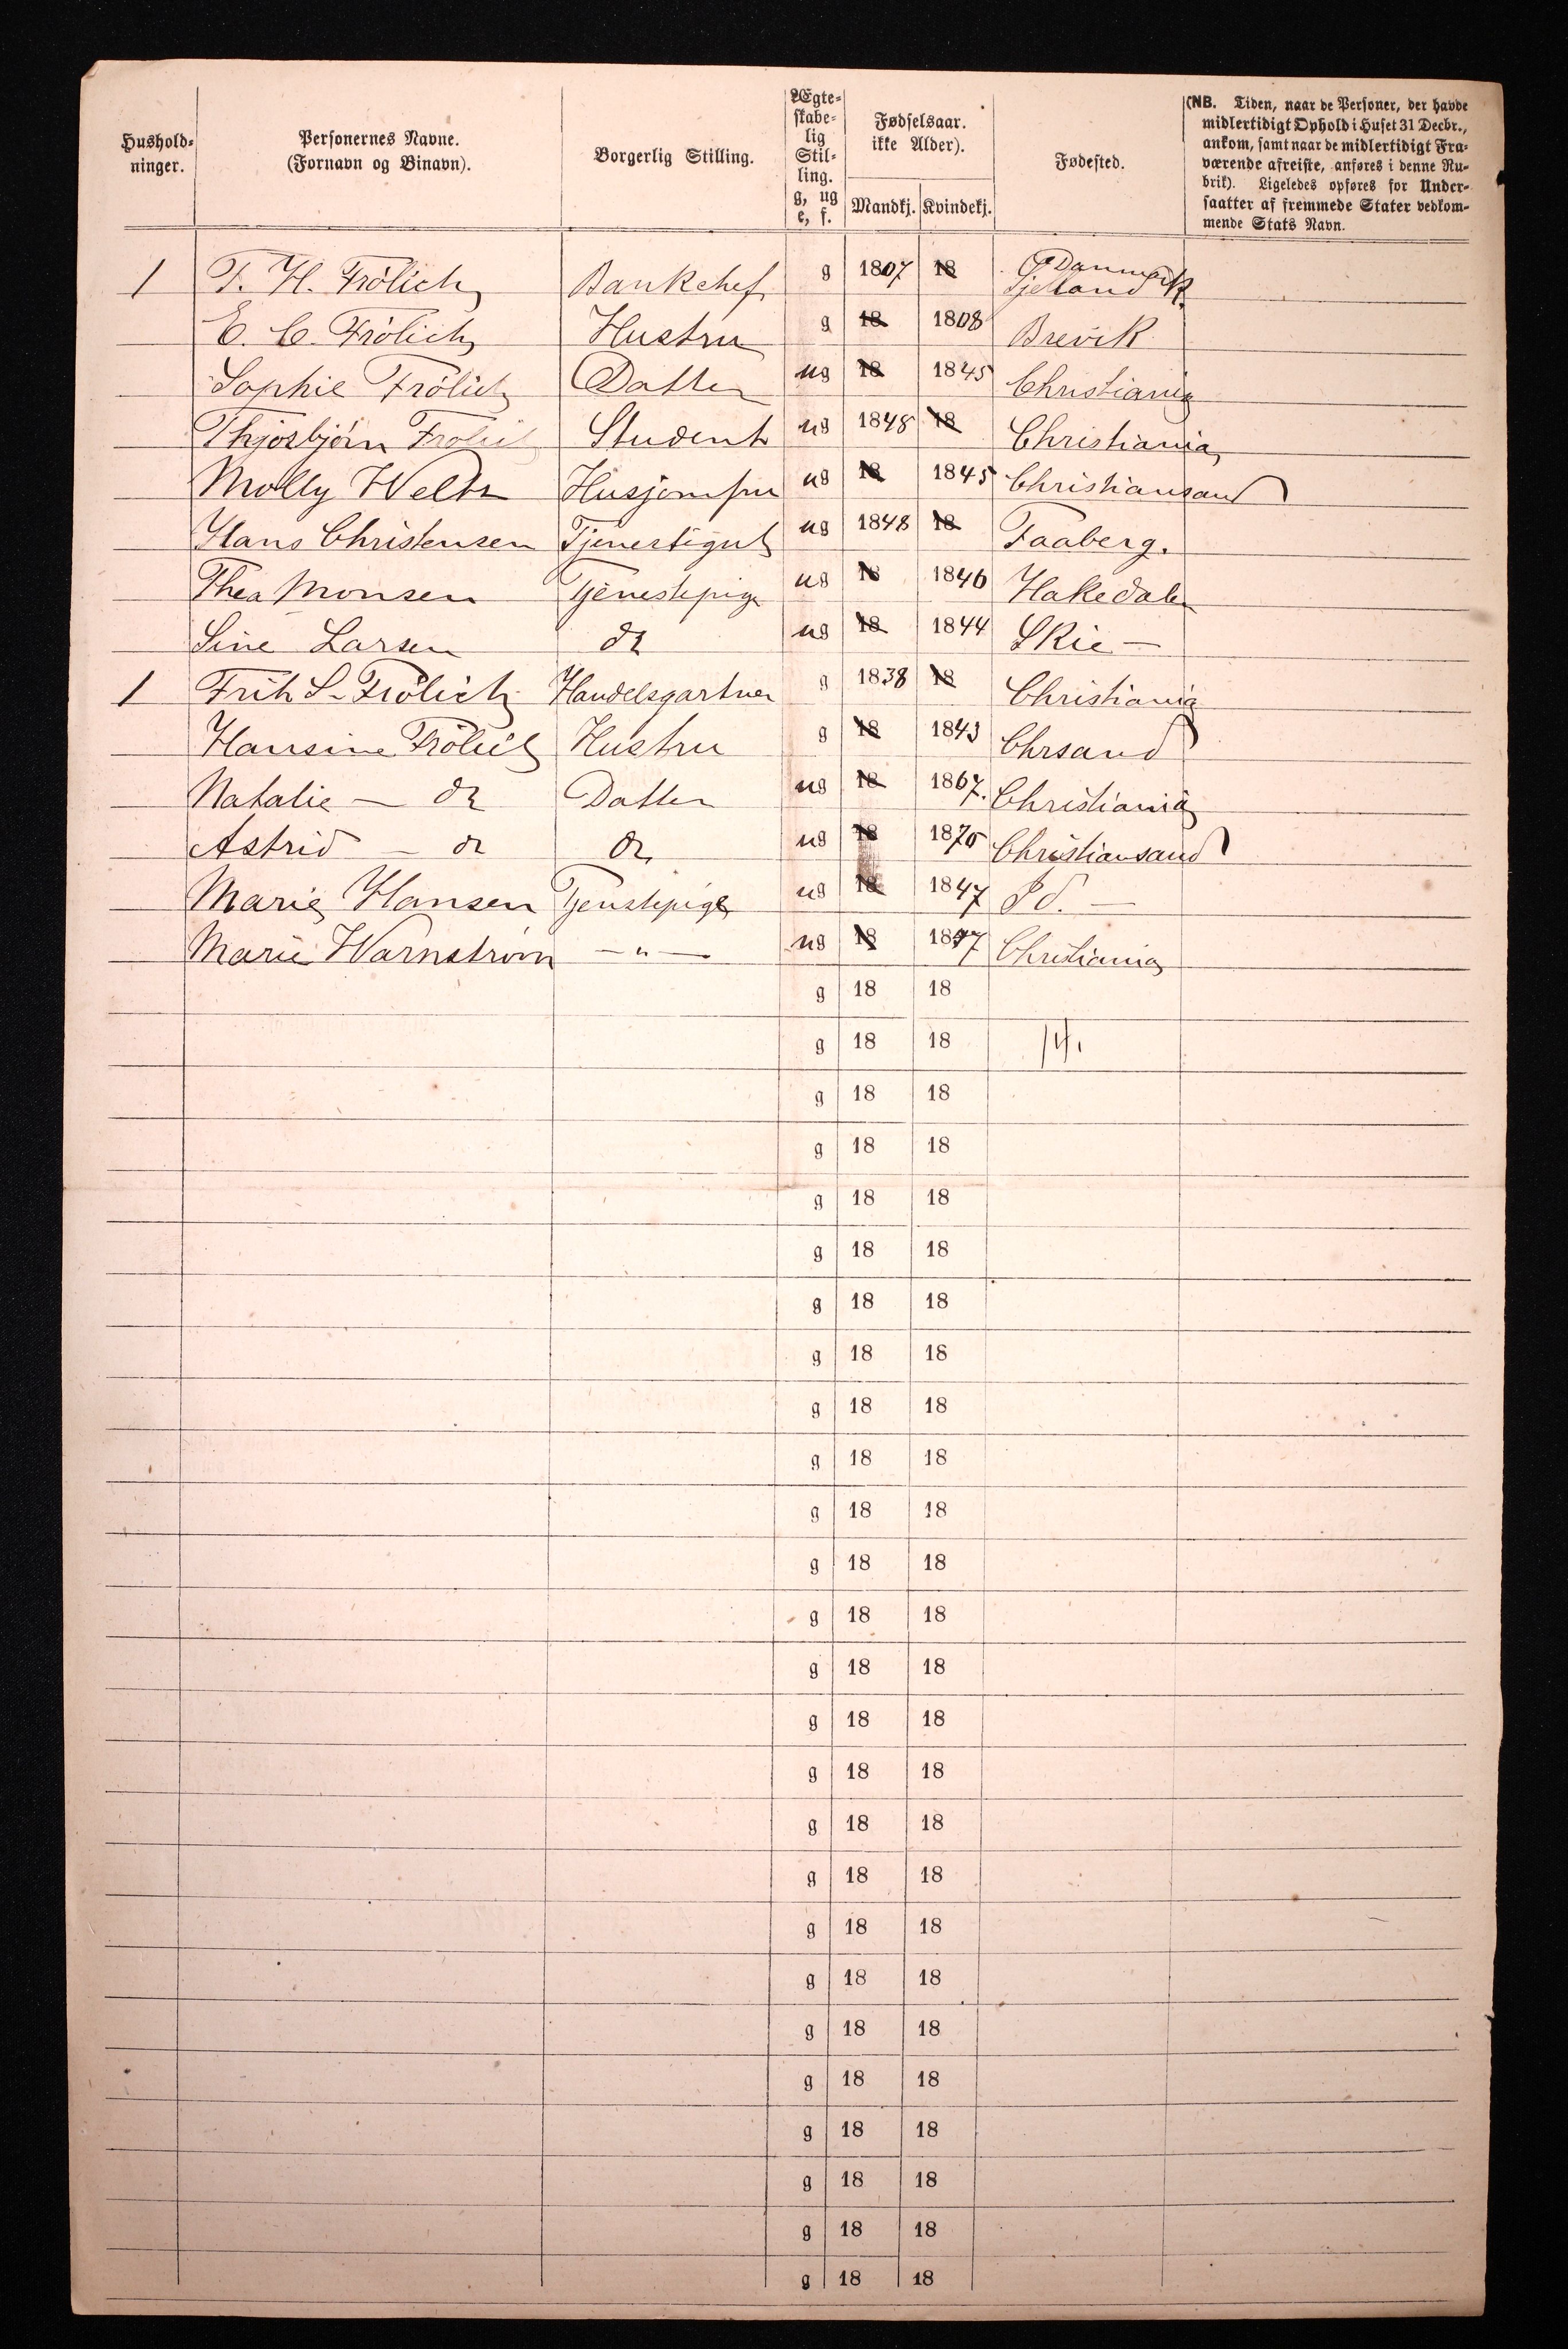 Hushold-
ninger.
Personernes Navne.
(Fornavn og Binavn).
Borgerlig Stilling.
Ægte-
skabe-
lig
Stil-
ling.
g, ug
e, f.
Fødselsaar.
ikke Alder).
Mandkj. Kvindekj.
Fødested.
(NB. Tiden, naar de Personer, der havde
midlertidigt Ophold i Huset 31 Decbr.,
ankom, samt naar de midlertidigt Fra-
værende afreiste, anføres i denne Ru-
brik). Ligeledes opføres for Under-
saatter af fremmede Stater vedkom-
mende Stats Navn.
1 F. H. Frölich Bankchef g 1807 18 Danmark
E. C. Frölich Hustru g 18 1808 Brevik
Sophie Frölich Datter ug 18 1845 Christiania
Thjosbjörn Frölich Student ug 1848 18 Christiania
Molly Husjomfru ug 18 1845 Christiansand
Hans Christensen Tjenestegut ug 1848 18 Faaberg.
Thea Monsen Tjenestepige ug 18 1846 Hakedalen
Sine Larsen do ug 18 1844 Skie —
1 Frith S. Frölich Handelsgartner g 1838 18 Christiania
Hansine Frölich Hustru g 18 1843 Chrsand
Natalie — do Datter ug 18 1867. Christiania
Astrid — do do ug 18 1870 Christiansand
Marie Hansen Tjenstepige ug 18 1847 Id. —
Marie Warnström — " — ug 18 1847 Christiania
g 18 18
g 18 18 14
g 18 18
g 18 18
g 18 18
g 18 18
g 18 18
g 18 18
g 18 18
g 18 18
g 18 18
g 18 18
g 18 18
g 18 18
g 18 18
g 18 18
g 18 18
g 18 18
g 18 18
g 18 18
g 18 18
g 18 18
g 18 18
g 18 18
g 18 18
g 18 18